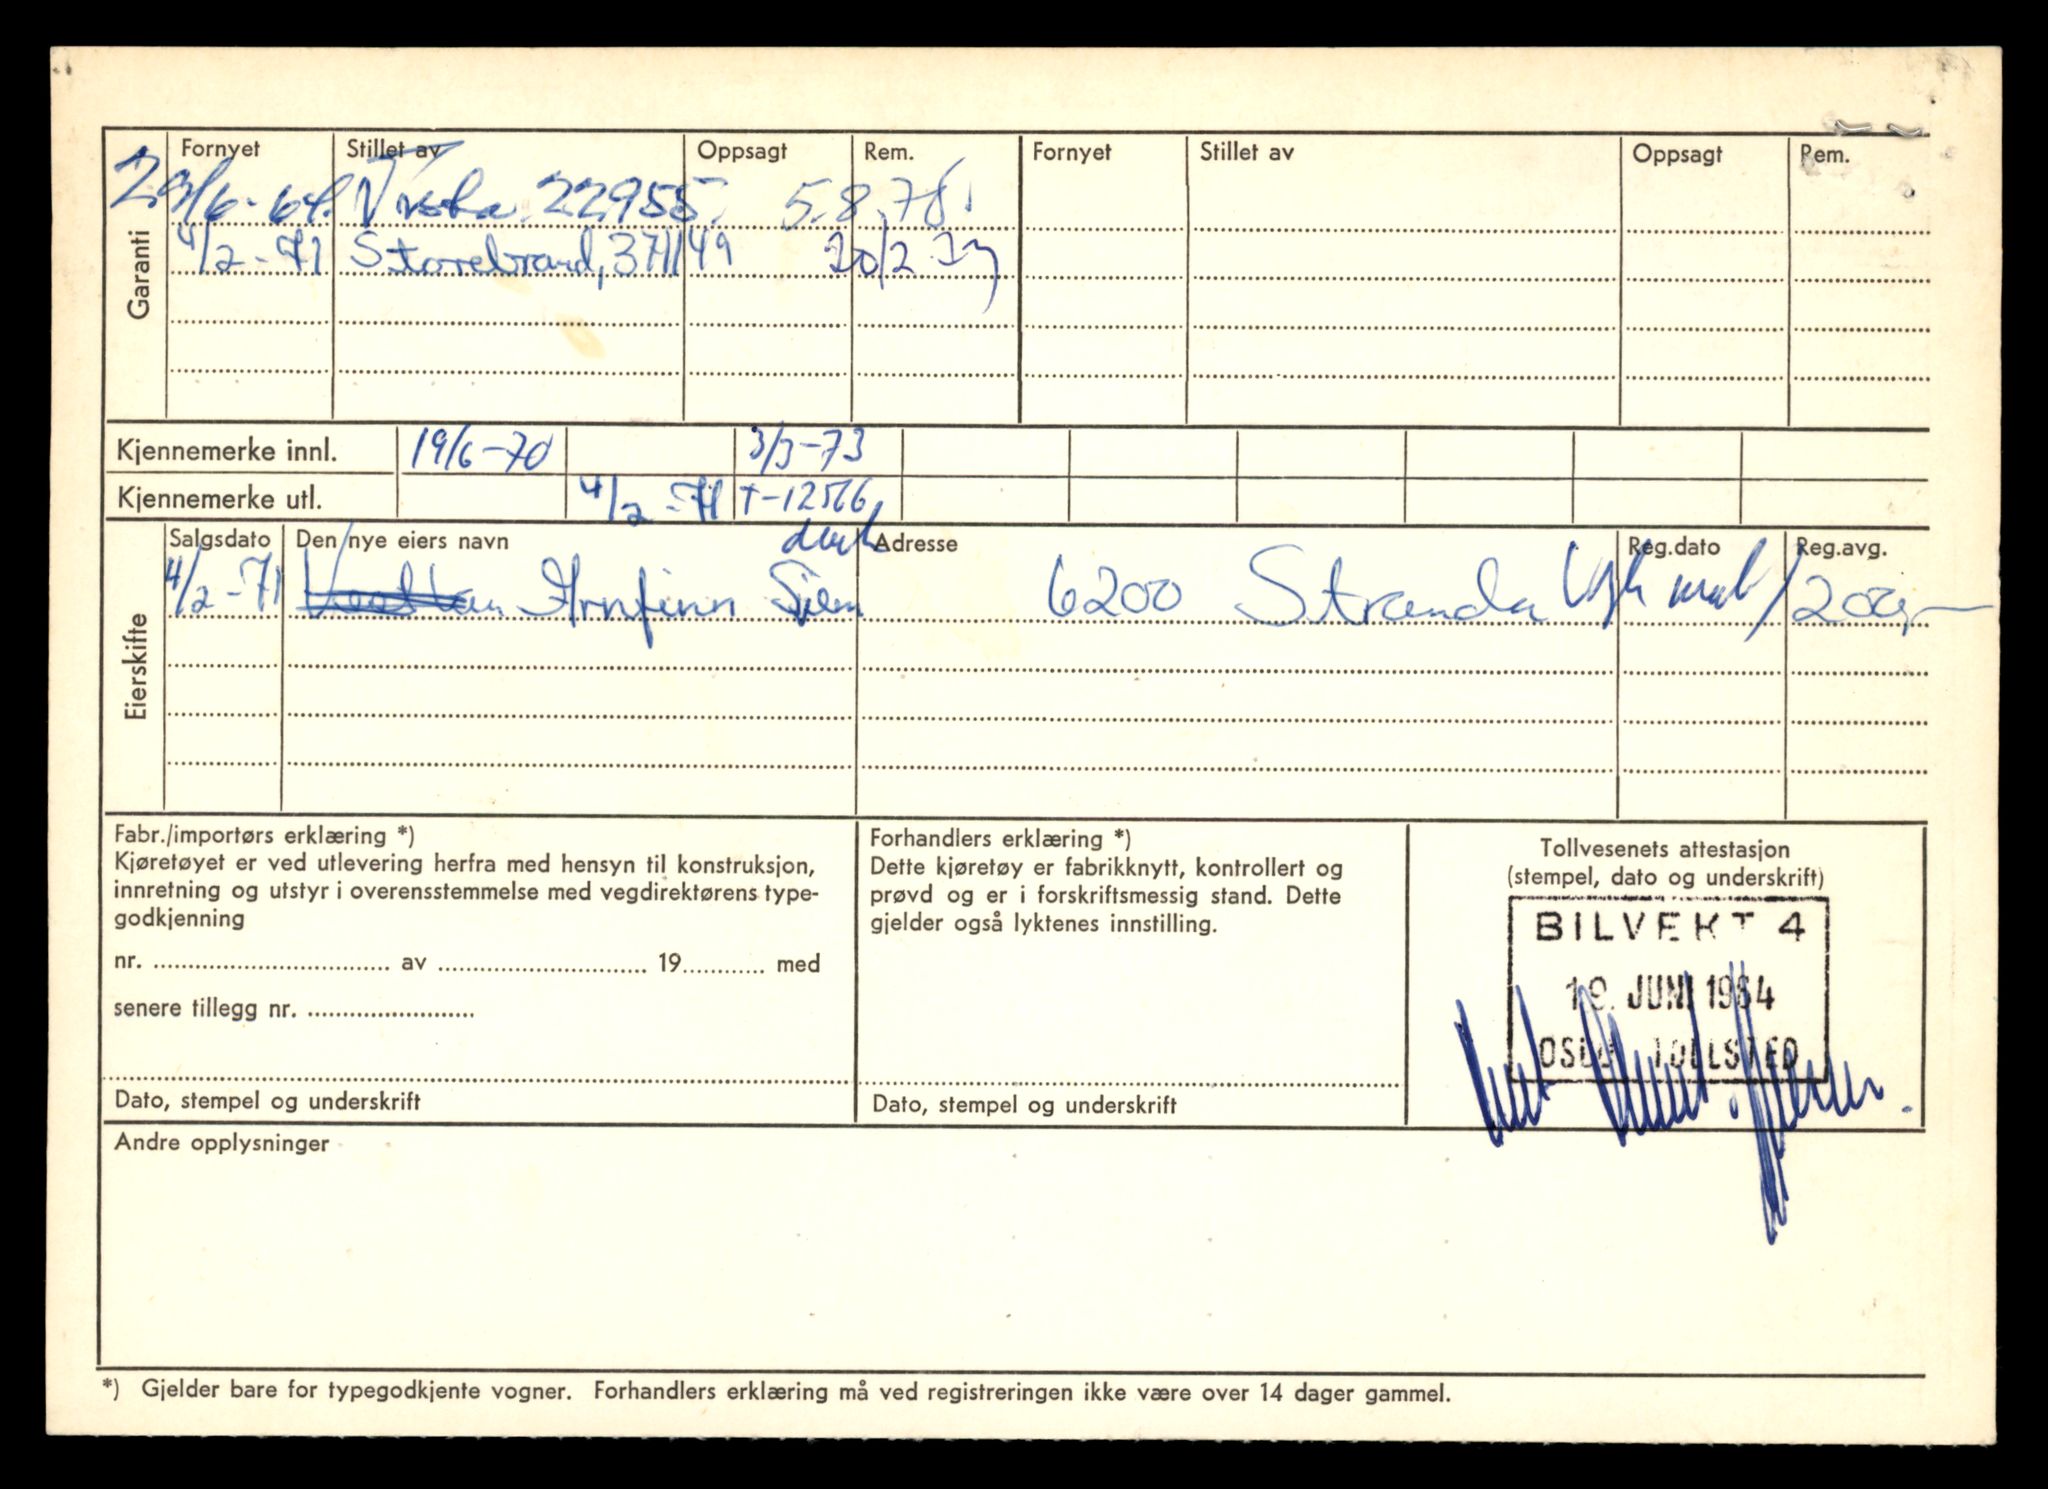 Fornyet Stillet av Oppsagt Rem. Fornyet Stillet av Oppsagt Rem.
Garanti
29/6-64. 22955 5.8.70.
4/2-71 Storebrand, 371149 20/2
Kjennemerke innl. 19/6-70 3/3-73
Kjennemerke utl. 4/2-71 T-12566
Eierskifte
Salgsdato Den nye eiers navn Adresse Reg.dato Reg.avg.
4/2-71 Arnfinn Siem 6200 Stranda 200,-
Fabr./importørs erklæring *)
Kjøretøyet er ved utlevering herfra med hensyn til konstruksjon,
innretning og utstyr i overensstemmelse med vegdirektørens type-
godkjenning
nr. .......... av .......... 19.......... med
senere tillegg nr. ..........
Dato, stempel og underskrift
Forhandlers erklæring *)
Dette kjøretøy er fabrikknytt, kontrollert og
prøvd og er i forskriftsmessig stand. Dette
gjelder også lyktenes innstilling.
Dato, stempel og underskrift
Tollvesenets attestasjon
(stempel, dato og underskrift)
BILVEKT 4
19. JUNI 1964
OSLO TOLLSTED
Andre opplysninger
*) Gjelder bare for typegodkjente vogner. Forhandlers erklæring må ved registreringen ikke være over 14 dager gammel.